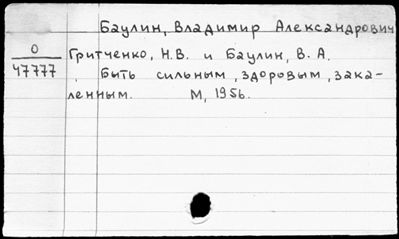 Баулин, Владимир Александрович
О
47777
Гритченко, Н.В. и Баулин, В. А.
Быть сильным, здоровым, зака-
ленным. М, 1956.